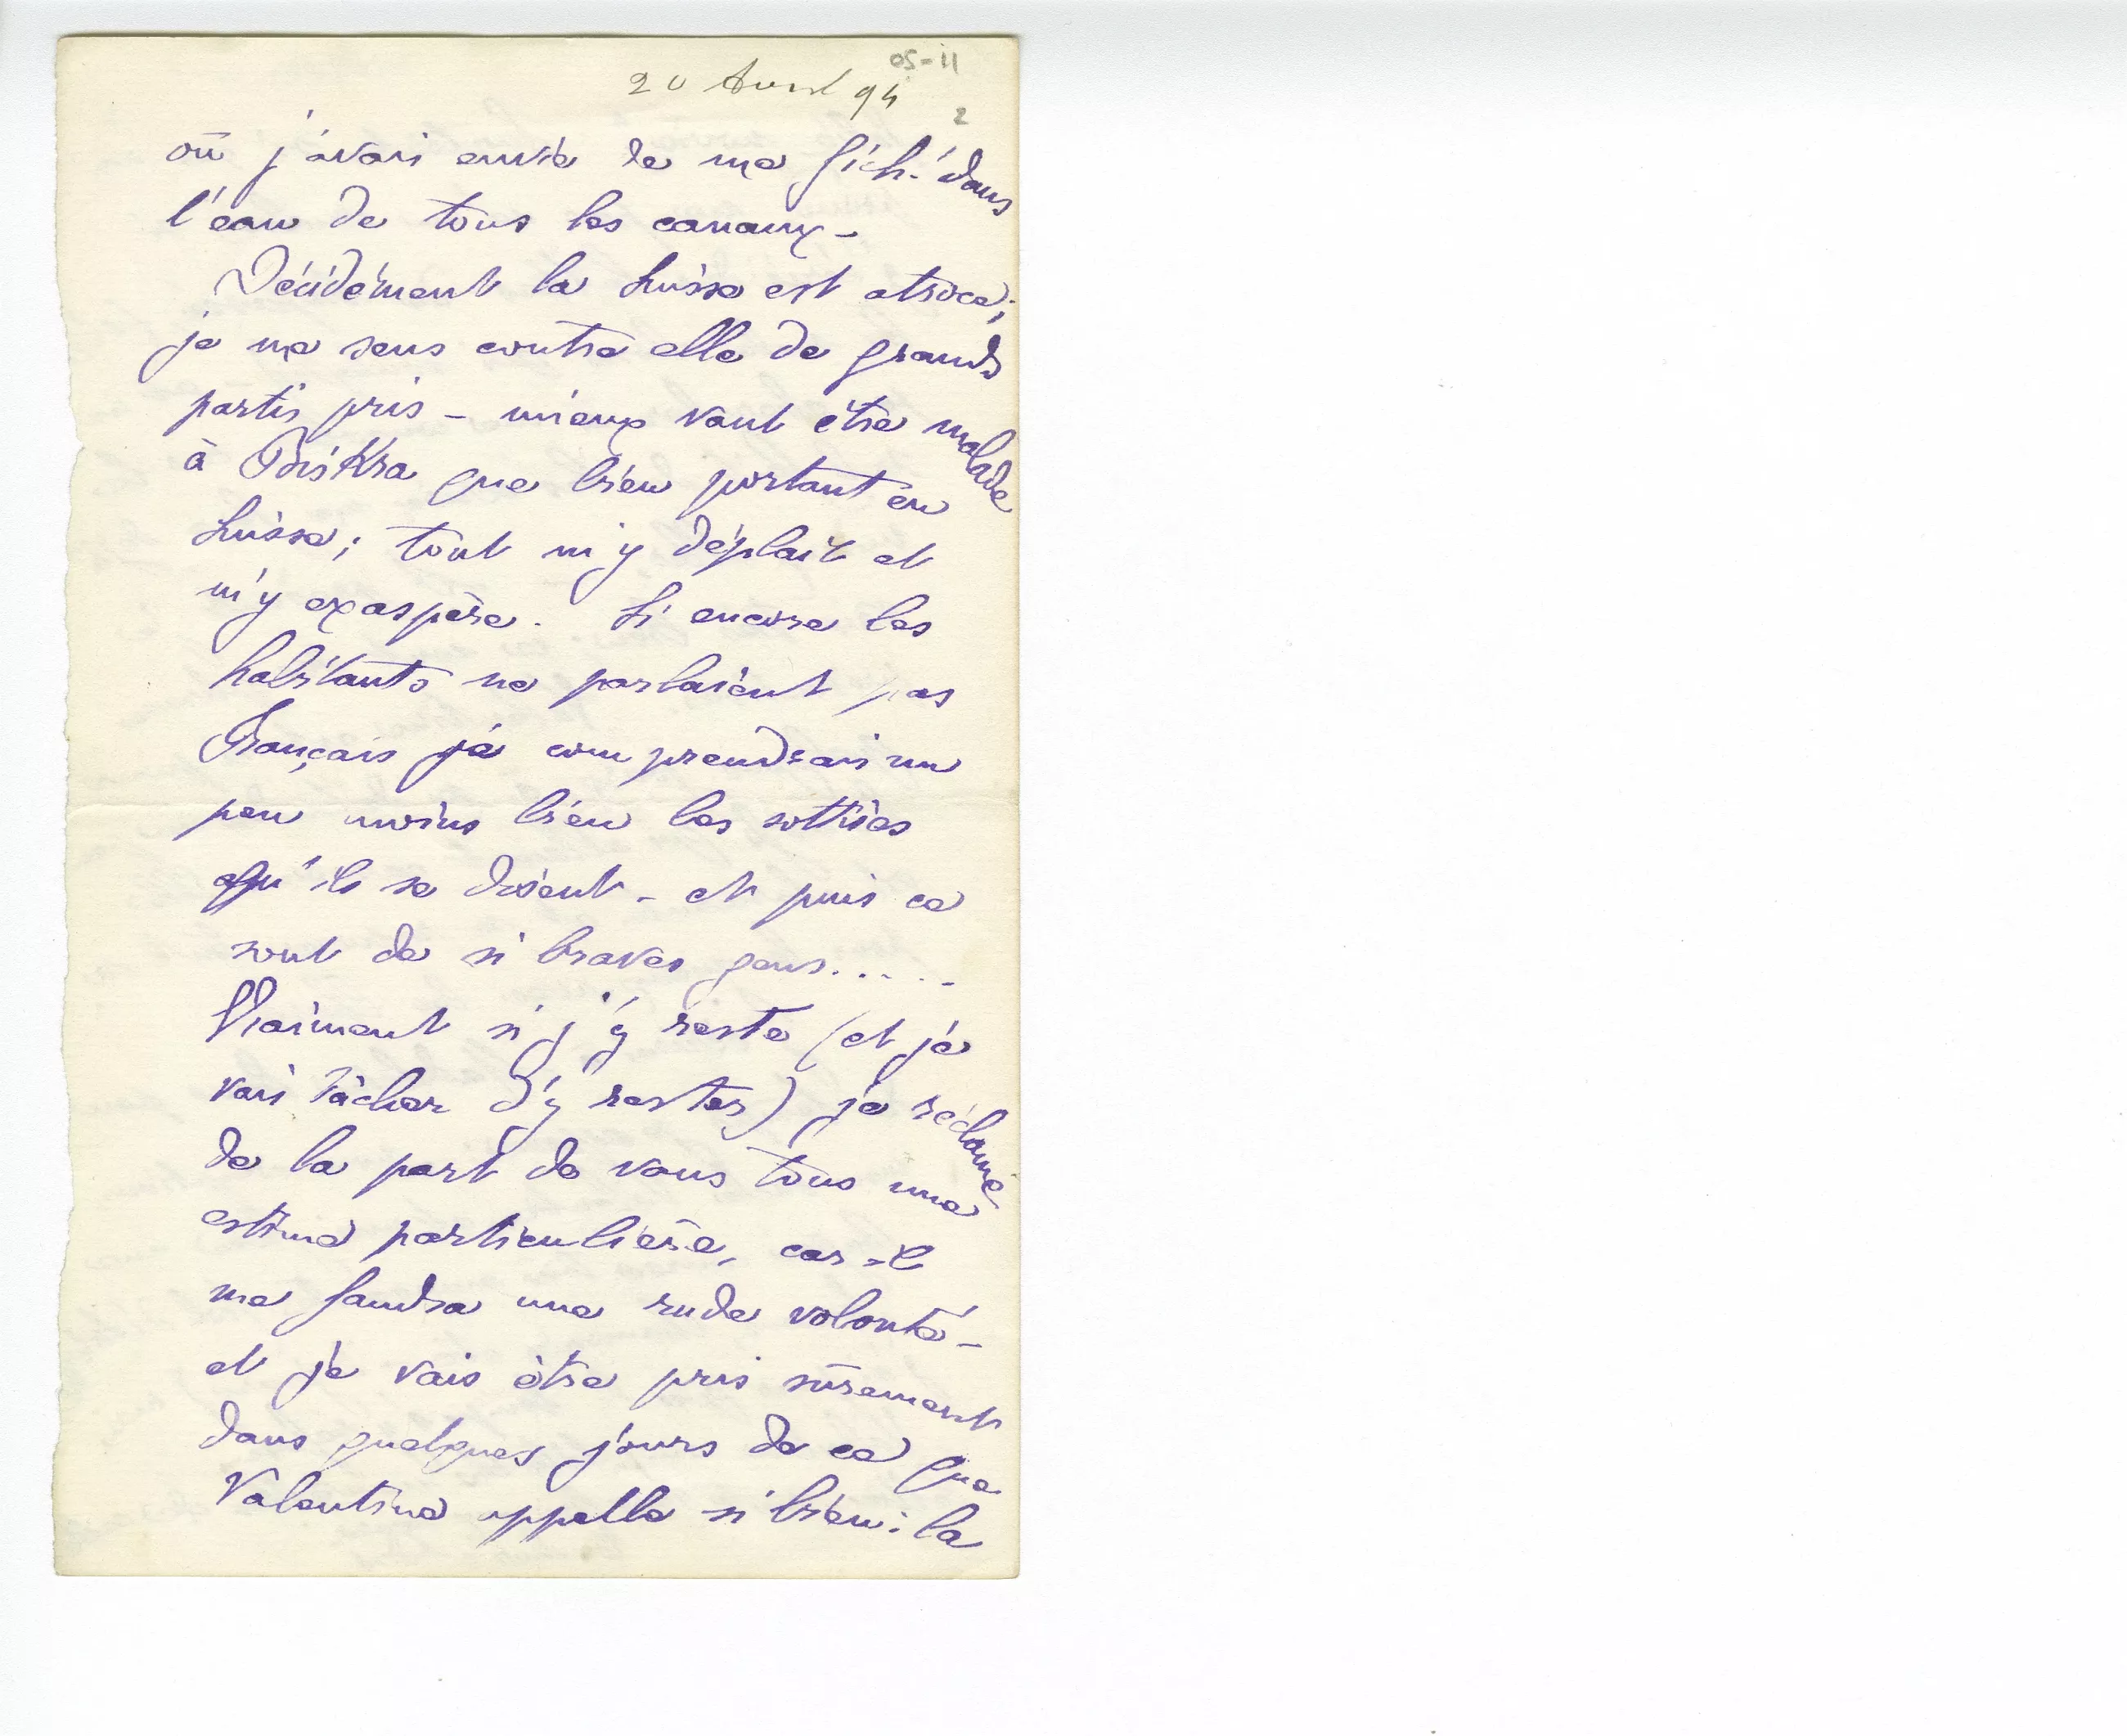 05-11
20 Avril 94
2
où j'avais envie de me fich. dans
l'eau de tous les canaux –
Décidément la Suisse est atroce;
je me sens contre elle de grands
partis pris – mieux vaut être malade
à Biskra que bien portant en
Suisse; tout m'y déplait et
m'y exaspère. Si encore les
habitants ne parlaient pas
Français je comprendrais un
peu moins bien les sottises
qu'ils se disent – et puis ce
sont de si braves gens.....
Vraiment si j'y reste (et je
vais tâcher d'y rester) je réclame
de la part de vous tous une
estime particulière, car il
me faudra une rude volonté –
et je vais être pris sûrement
dans quelques jours de ce que
Valentine appelle si bien : la